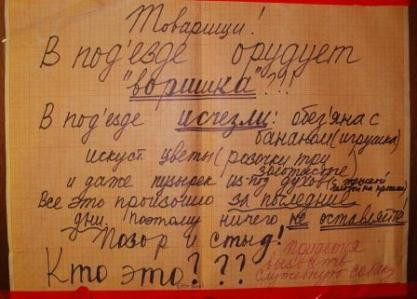 Товарищи!
В под'езде орудует
"воришка"???
В под'езде исчезли: обез'яна с
бананом (игрушка)
искуст. цветы (розочки три
золотистые
и даже пузырек из-под духов
Все это произошло за последние
дни. Поэтому ничего не оставляйте!
Позор и стыд!
Кто это???
Придется
вызвать
служебную собаку